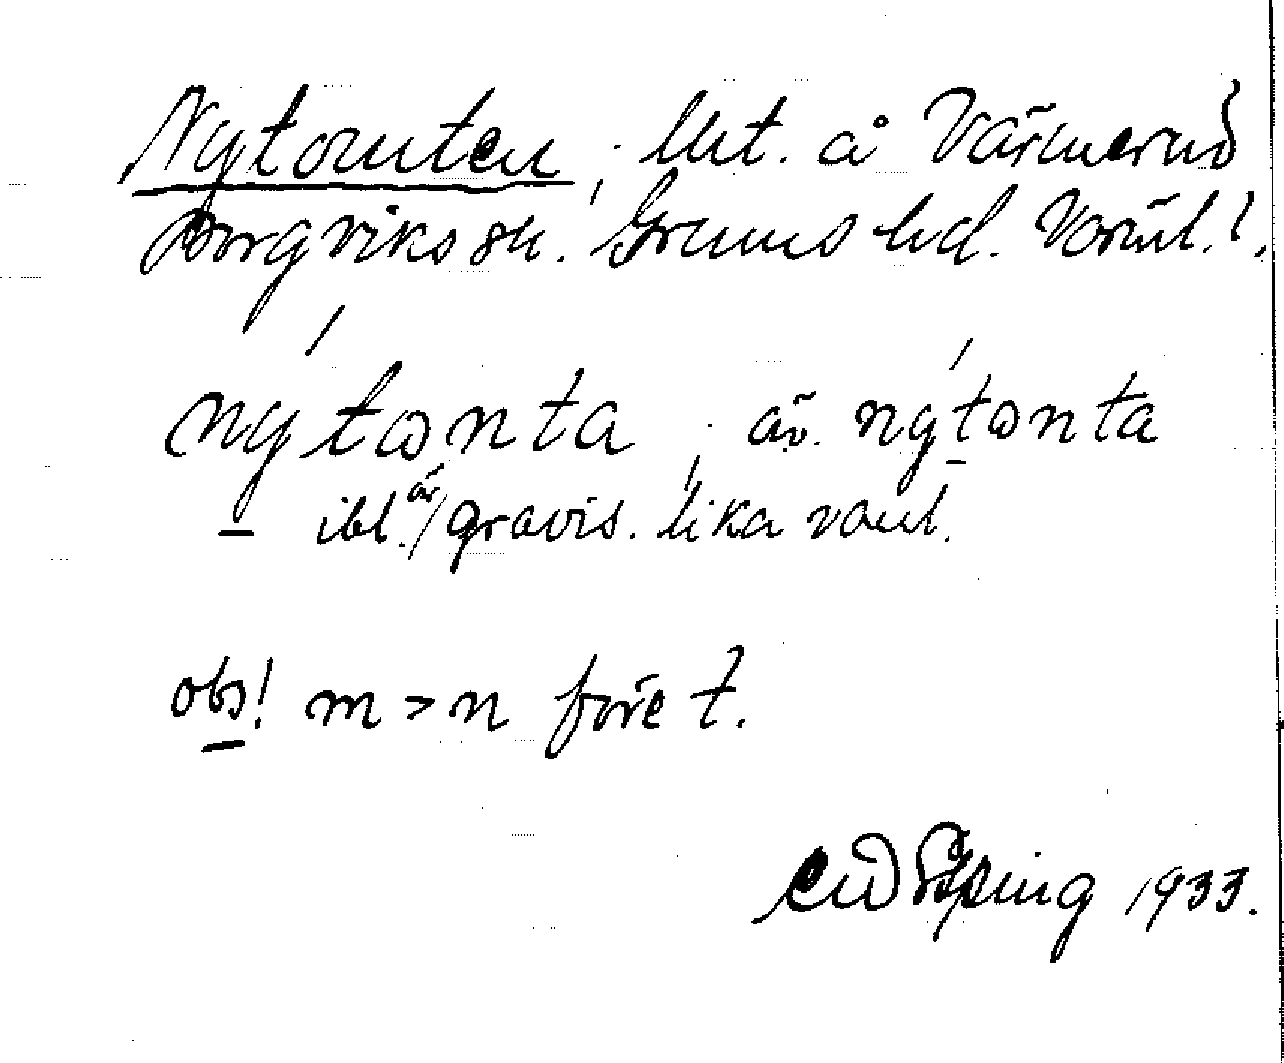 Nytomten, lht. å Värmerud
Borgviks sn. Grums hd. Värml.
nýtωnta, äv. nýtωnta
ibl. är gravis. lika vanl.
obs! m > n före t.
1933.